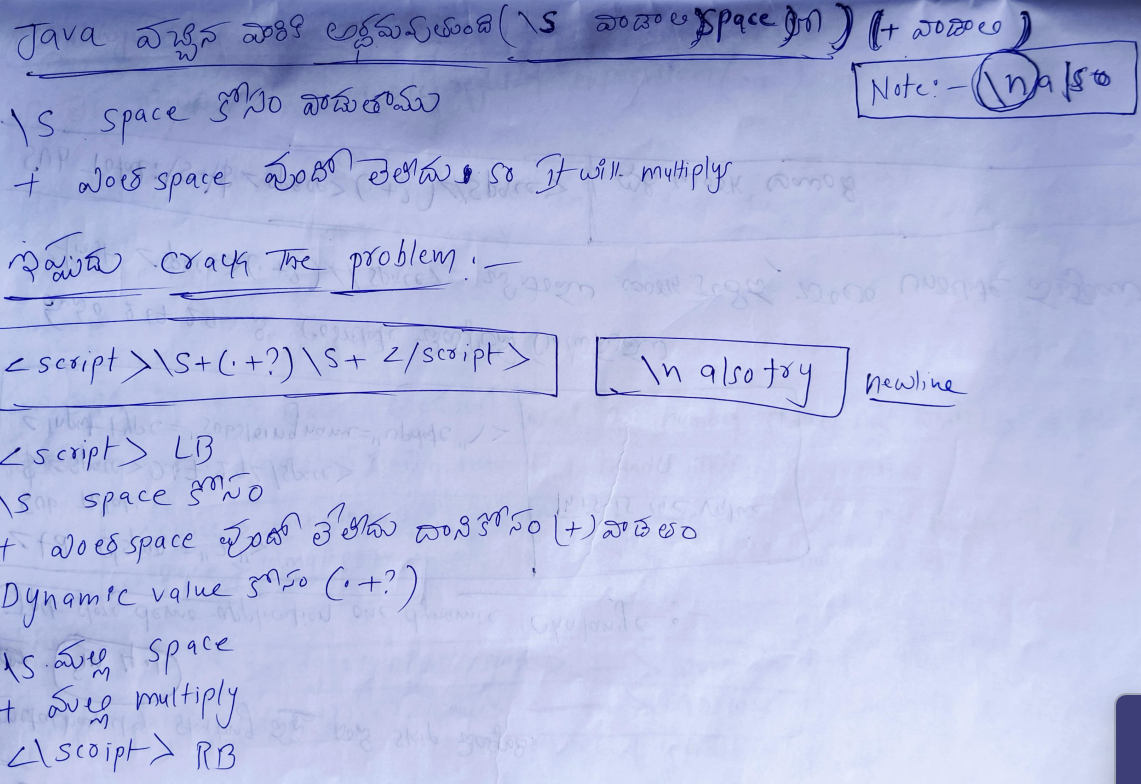 Java వచ్చిన వారికి అర్థమవుతుంది (\s వాడాలి space కి) (+ వాడాలి)
Note:- \n also
\s space కోసం వాడుతాము
+ ఎంత space వుందో తెలీదు so It will multiply
ఇప్పుడు crack The problem :-
<script>\s+(.+?)\s+</script>
\n also try newline
<script> LB
\s space కోసం
+ ఎంత space వుందో తెలీదు దానికోసం (+) వాడతం
Dynamic value కోసం (.+?)
\s మల్లి space
+ మల్లి multiply
<\script> RB